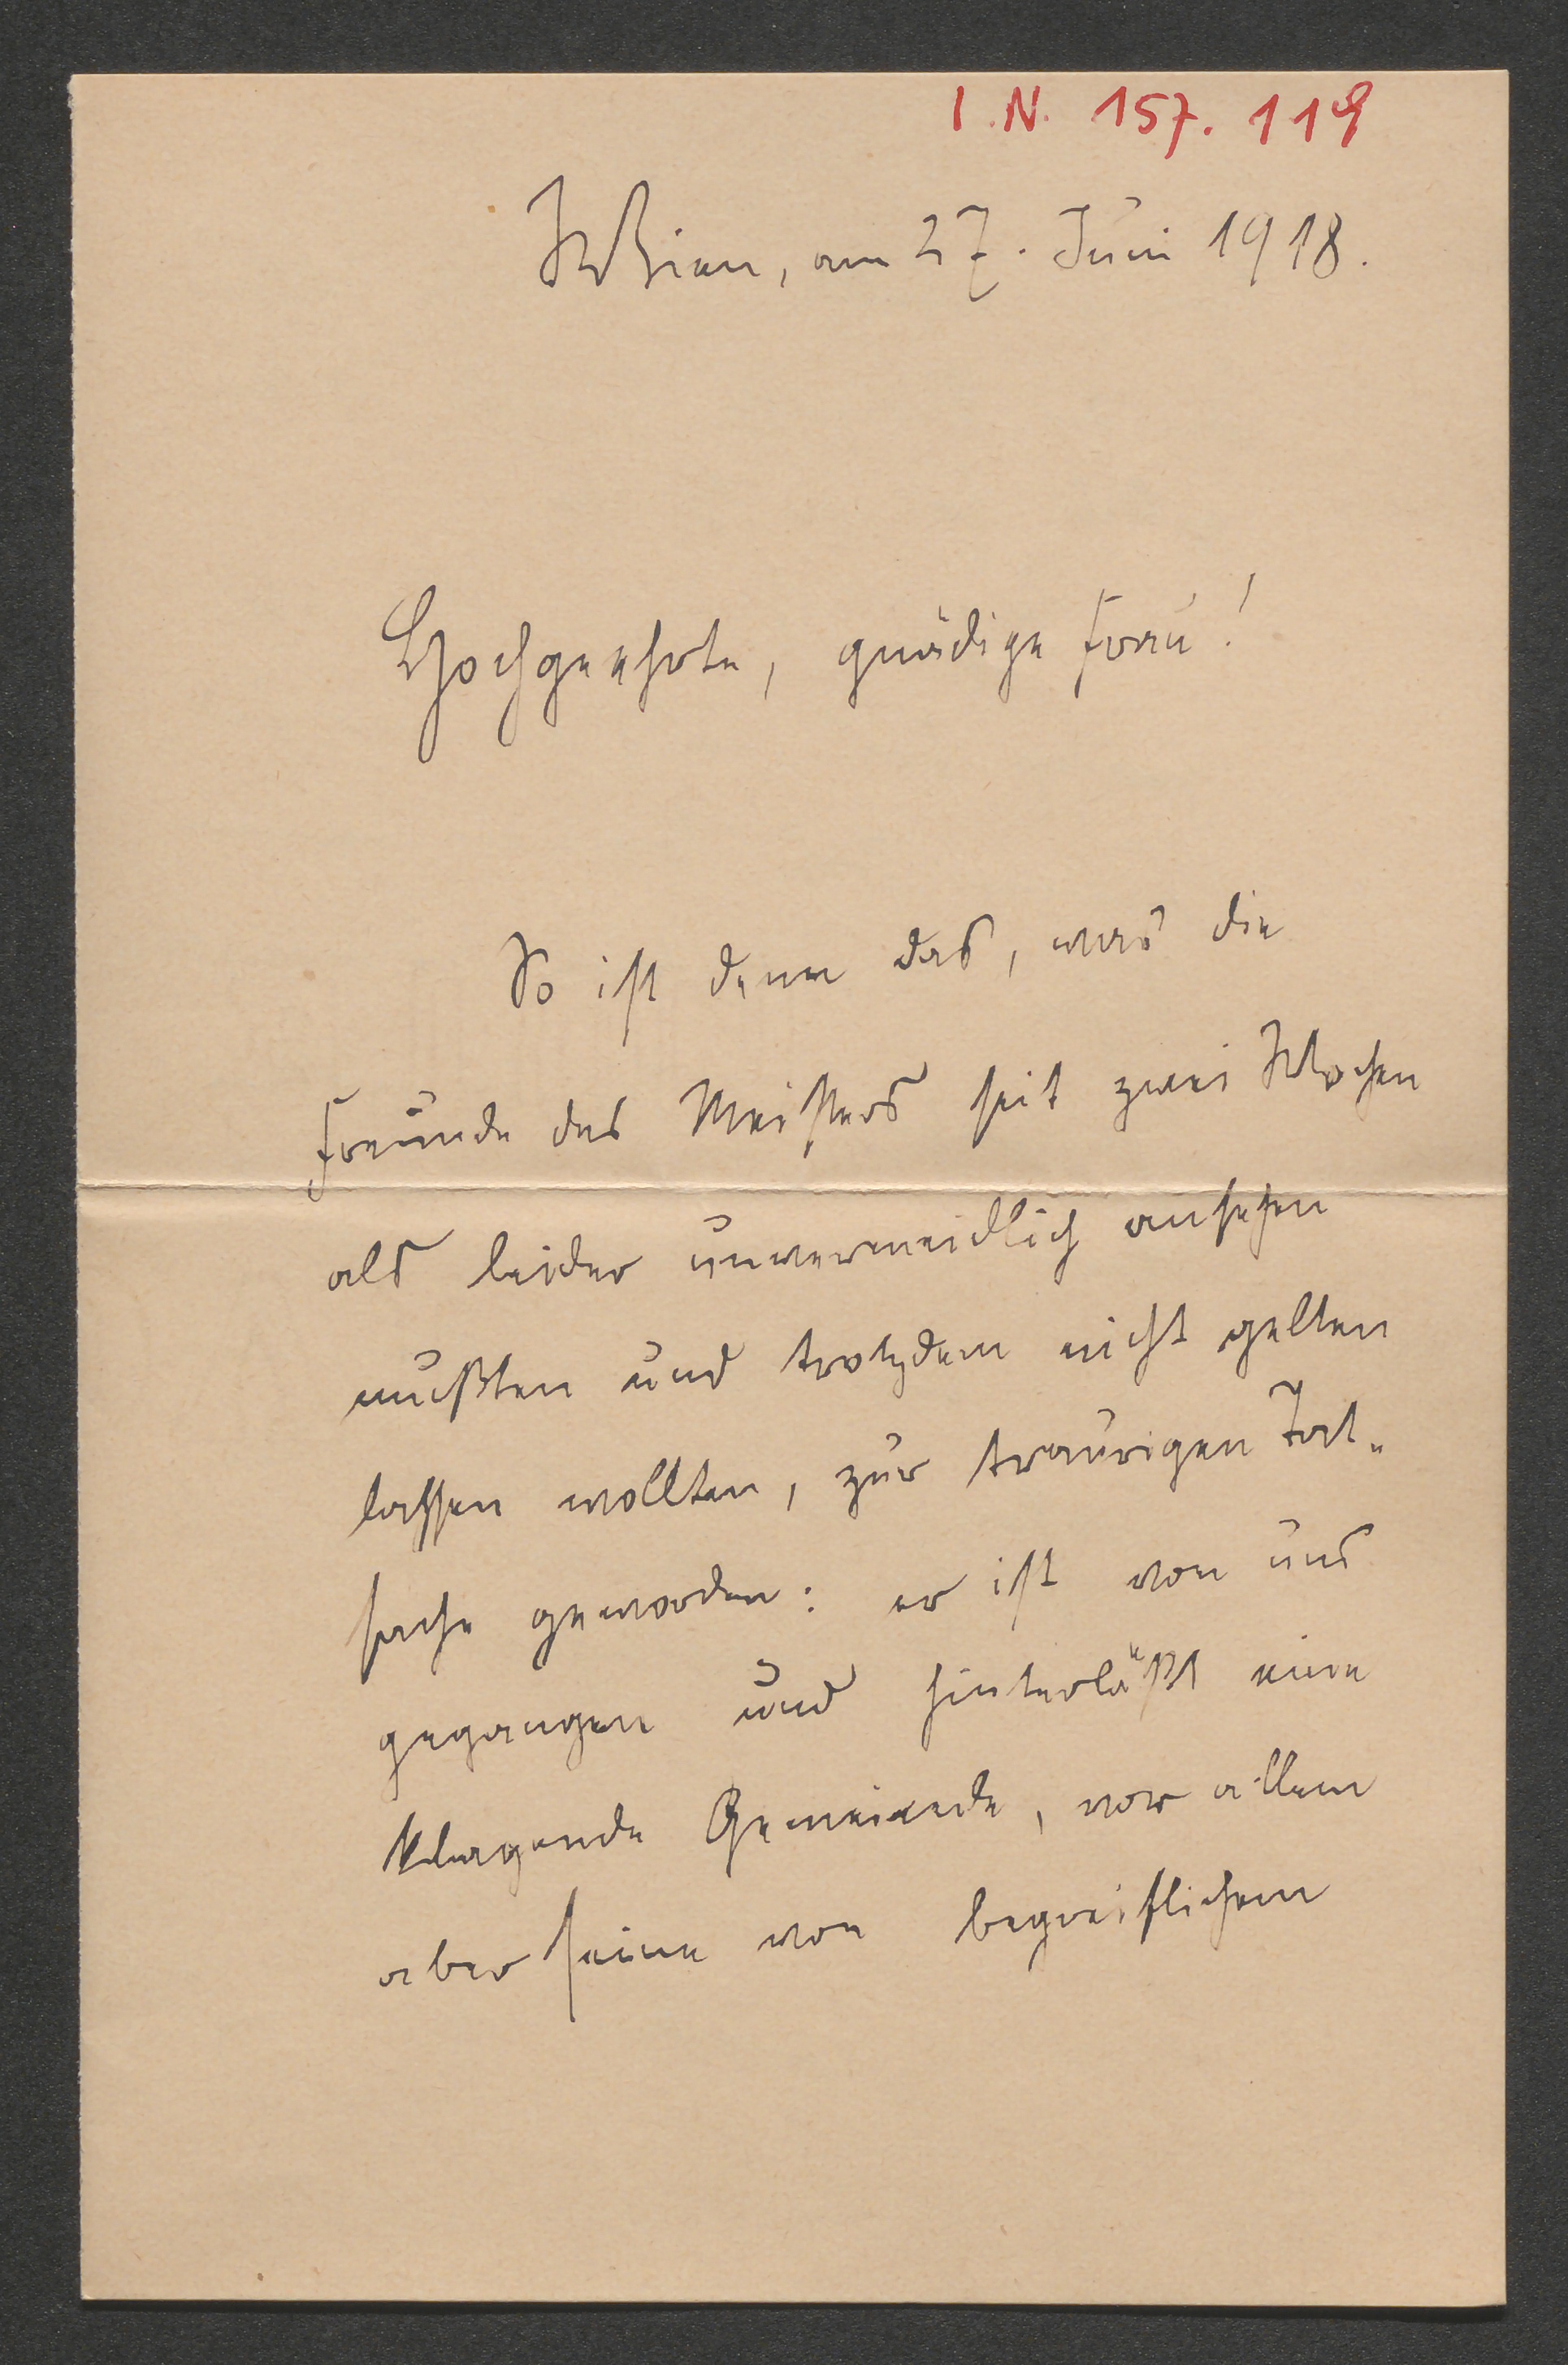 I.N. 157.119
Wien, am 27. Juni 1918.
Hochgeehrte, gnädige Frau!
So ist denn das, was die
Freunde des Meisters seit zwei Wochen
als leider unvermeidlich ansehen
mußten und trotzdem nicht gelten
lassen wollten, zur traurigen Tat-
sache geworden: er ist von uns
gegangen und hinterläßt eine
klagende Gemeinde, vor allem
aber seine von begreiflichem